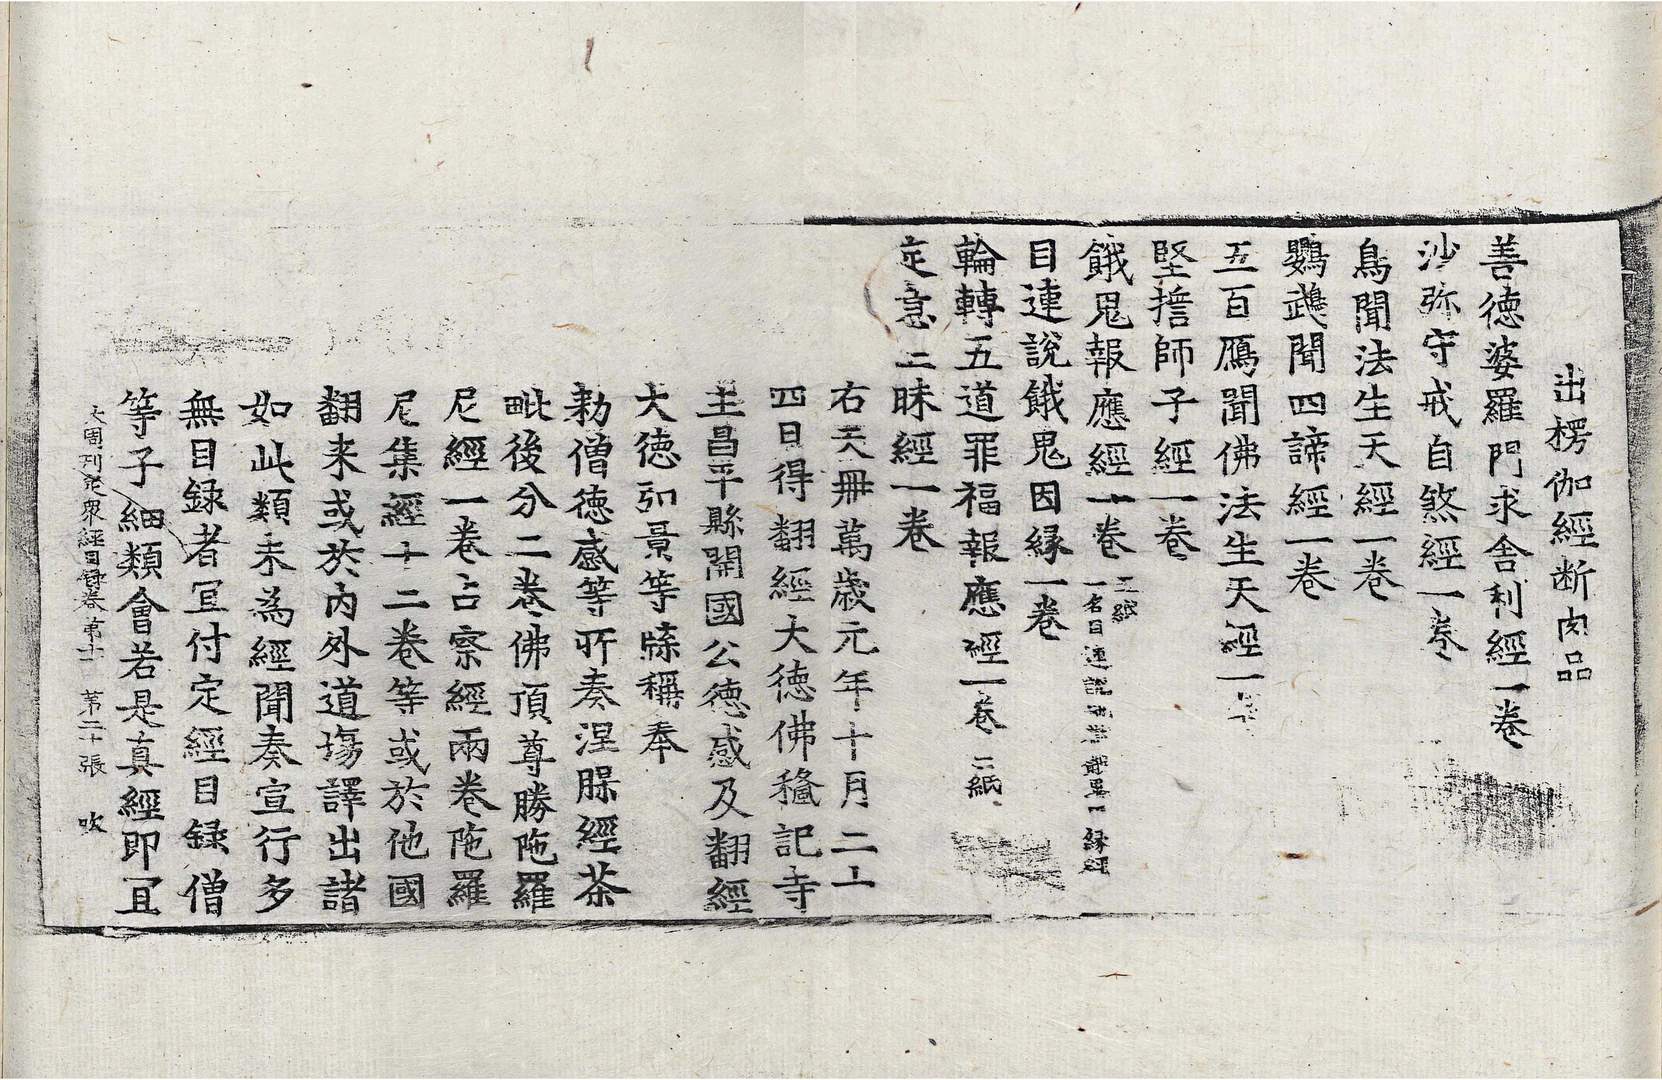 出楞伽經断肉品
善徳婆羅門求舎利經一卷
沙弥守戒自煞經一卷
鳥聞法生天經一卷
鸚鵡聞四諦經一卷
五百鴈聞佛法生天經一
堅誓師子經一卷
餓鬼報應經一卷 二紙 一名目連說 緣經
目連說餓鬼因緣一卷
輪轉五道罪福報應經一卷 二紙
定意三昧經一卷
右天冊萬歳元年十月二十
四日得翻經大徳佛穐記寺
主昌平縣開國公徳感及翻經
大徳弘景等牒稱奉
勅僧徳感等所奏涅脲經荼
毗後分二卷佛頂尊勝陁羅
尼經一卷占察經兩卷陁羅
尼集經十二卷等或於他國
翻来或於內外道塲譯出諸
如此類未為經聞奏宣行多
無目録者冝付定經目録僧
等子細類會若是真經即冝
大周刊定衆經目録卷第十一 第二十張 吹